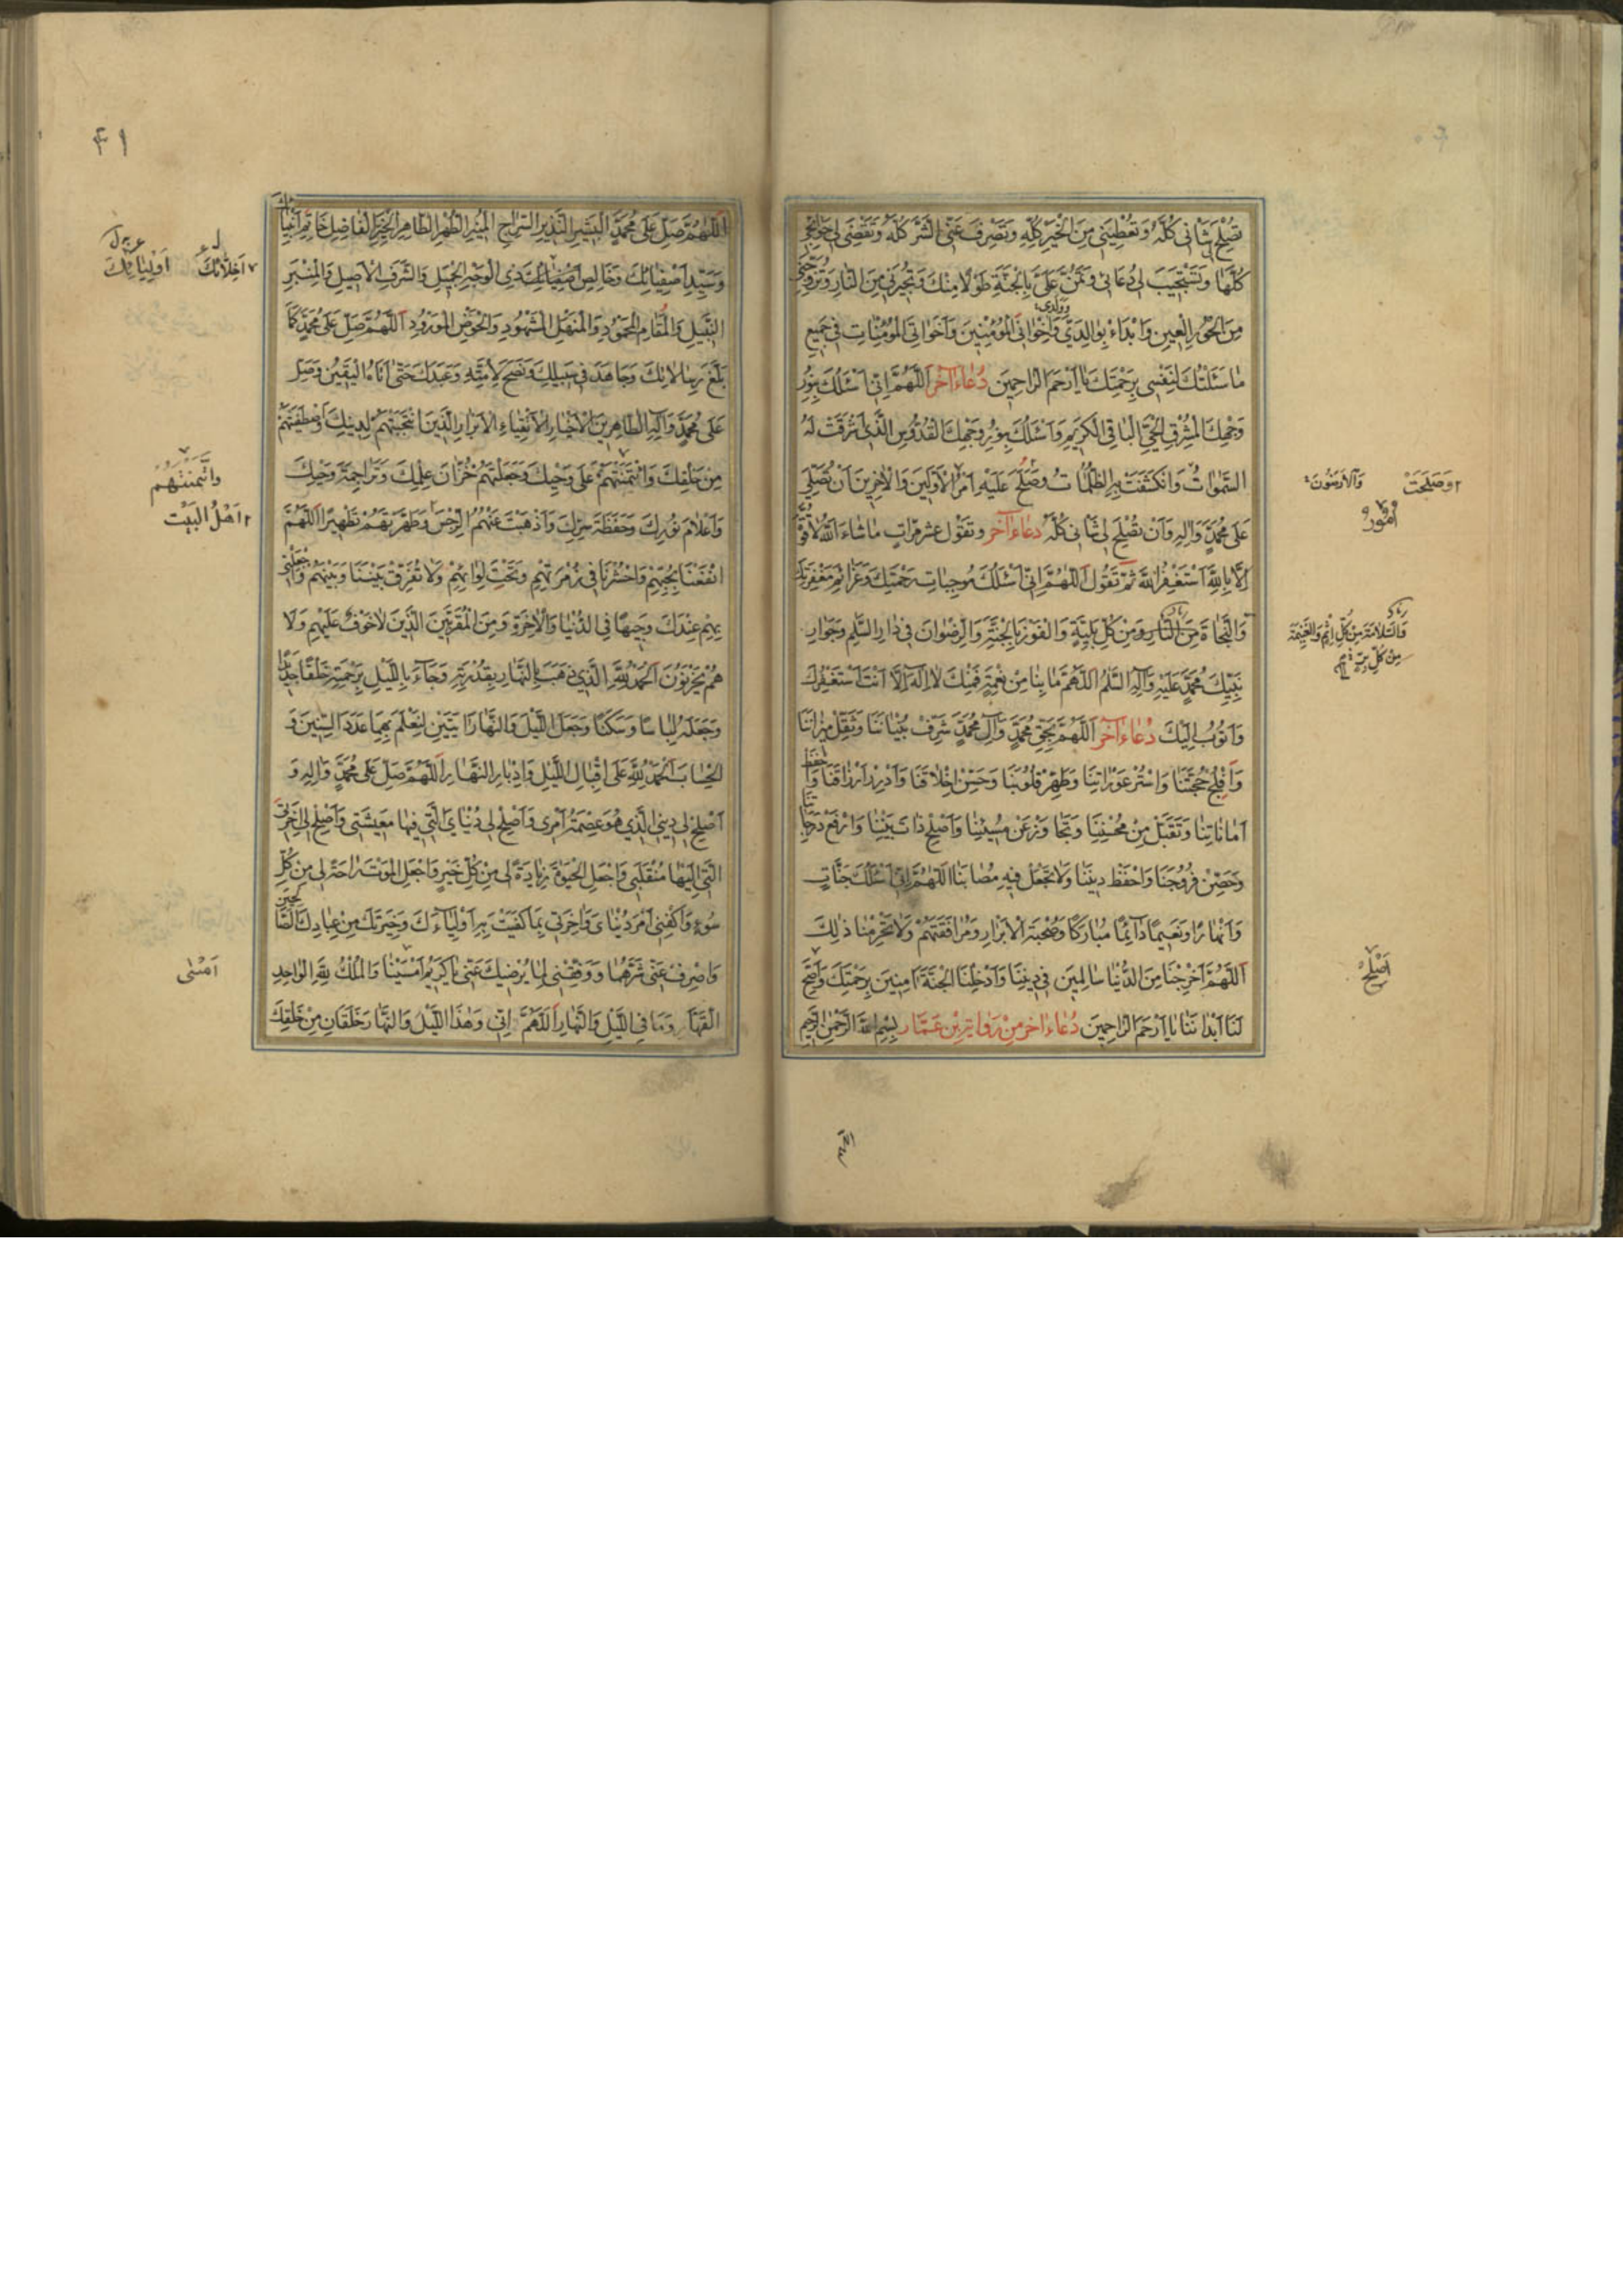 تُصْلِحَ لِى شَانِى كُلَّهُ وَتُعْطِيَنِى مِنَ الْخَيْرِ كُلِّهِ وَتَصْرِفَ عَنِّى الشَّرَّ كُلَّهُ وَتَقْضِىَ لِى حَوَائِجِى
كُلَّهَا وَتَسْتَجِيبَ لِى دُعَائِى وَتَمُنَّ عَلَىَّ بِالْجَنَّةِ طَوْلًا مِنْكَ وَتُجِيرَنِى مِنَ النَّارِ وَتُزَوِّجَنِى
مِنَ الْحُورِ الْعِينِ وَابْدَاءْ بِوَالِدَىَّ وَوَلَدِى وَاِخْوَانِىَ الْمُؤْمِنِينَ وَاَخَوَاتِىَ الْمُؤْمِنَاتِ فِى جَمِيعِ
مَا سَئَلْتُكَ لِنَفْسِى بِرَحْمَتِكَ يَا اَرْحَمَ الرَّاحِمِينَ دُعَاء آخَر اَللّٰهُمَّ اِنِّى اَسْئَلُكَ بِنُورِ
وَجْهِكَ الْمُشْرِقِ الْحَىِّ الْبَاقِى الْكَرِيمِ وَاَسْئَلُكَ بِنُورِ وَجْهِكَ الْقُدُّوسِ الَّذِى اَشْرَقَتْ لَهُ
السَّمٰوَاتُ وَانْكَشَفَتْ بِهِ الظُّلُمَاتُ وَصَلُحَ عَلَيْهِ اَمْرُ الْاَوَّلِينَ وَالْاٰخِرِينَ اَنْ تُصَلِّىَ
عَلٰى مُحَمَّدٍ وَاٰلِهِ وَاَنْ تُصْلِحَ لِى شَانِى كُلَّهُ دعاء آخر وتقول عشر مرات مَا شَاءَ اللّٰهُ لَا قُوَّةَ
اِلَّا بِاللّٰهِ اَسْتَغْفِرُ اللّٰهَ ثُمَّ تَقُولُ اَللّٰهُمَّ اِنِّى اَسْئَلُكَ مُوجِبَاتِ رَحْمَتِكَ وَعَزَائِمَ مَغْفِرَتِكَ
وَالنَّجَاةَ مِنَ النَّارِ وَمِنْ كُلِّ بَلِيَّةٍ وَالْفَوْزَ بِالْجَنَّةِ وَالرِّضْوَانَ فِى دَارِ السَّلٰمِ وَجِوَارِ
نَبِيِّكَ مُحَمَّدٍ عَلَيْهِ وَآلِهِ السَّلٰمُ اَللّٰهُمَّ مَا بِنَا مِنْ نِعْمَةٍ فَمِنْكَ لَا اِلٰهَ اِلَّا اَنْتَ اَسْتَغْفِرُكَ
وَاَتُوبُ اِلَيْكَ دُعَاء آخَر اَللّٰهُمَّ بِحَقِّ مُحَمَّدٍ وَآلِ مُحَمَّدٍ شَرِّفْ بُنْيَانَنَا وَثَقِّلْ مِيزَانَنَا
وَاَفْلِجْ حُجَّتَنَا وَاسْتُرْ عَوْرَاتِنَا وَطَهِّرْ قُلُوبَنَا وَحَسِّنْ اَخْلَاقَنَا وَاَدْرِرْ اَرْزَاقَنَا وَاحْفَظْ
اَمَانَاتِنَا وَتَقَبَّلْ مِنْ مُحْسِنِنَا وَتَجَاوَزْ عَنْ مُسِيئِنَا وَاَصْلِحْ ذَاتَ بَيْنِنَا وَارْفَعْ دَرَجَاتِنَا
وَحَصِّنْ فُرُوجَنَا وَاحْفَظْ دِينَنَا وَلَا تَجْعَلْ فِيهِ مُصَابَنَا اَللّٰهُمَّ اِنِّى اَسْئَلُكَ جَنَّاتٍ
وَاَنْهَارًا وَنَعِيمًا دَائِمًا مُبَارَكًا وَصُحْبَةَ الْاَبْرَارِ وَمُرَافَقَتَهُمْ وَلَا تَحْرِمْنَا ذٰلِكَ
اَللّٰهُمَّ اَخْرِجْنَا مِنَ الدُّنْيَا سَالِمِينَ فِى دِينِنَا وَاَدْخِلْنَا الْجَنَّةَ اٰمِنِينَ بِرَحْمَتِكَ وَاَصِحَّ
لَنَا اَبْدَانَنَا يَا اَرْحَمَ الرَّاحِمِينَ دُعَاء اٰخر مِنْ رواية بْن عَمَّار بِسْمِ اللّٰهِ الرَّحْمٰنِ الرَّحِيمِ
وَصَلَحَتْ وَالْاَرَضُونَ
اُمُورُ
وَالسَّلَامَةَ مِنْ كُلِّ اِثْمٍ وَالْغَنِيمَةَ
مِنْ كُلِّ بِرٍّ
اَصْلِحْ
اللهم
۴۱
اَللّٰهُمَّ صَلِّ عَلٰى مُحَمَّدٍ الْبَشِيرِ النَّذِيرِ السِّرَاجِ الْمُنِيرِ الطُّهْرِ الطَّاهِرِ الْخَيِّرِ الْفَاضِلِ خَاتَمِ اَنْبِيَائِكَ
وَسَيِّدِ اَصْفِيَائِكَ وَخَالِصِ اَصْفِيَائِكَ ذِى الْوَجْهِ الْجَمِيلِ وَالشَّرَفِ الْاَصِيلِ وَالْمِنْبَرِ
النَّبِيلِ وَالْمَقَامِ الْمَحْمُودِ وَالْمَنْهَلِ الْمَشْهُودِ وَالْحَوْضِ الْمَوْرُودِ اَللّٰهُمَّ صَلِّ عَلٰى مُحَمَّدٍ كَمَا
بَلَّغَ رِسَالَاتِكَ وَجَاهَدَ فِى سَبِيلِكَ وَنَصَحَ لِاُمَّتِهِ وَعَبَدَكَ حَتّٰى اَتَاهُ الْيَقِينُ وَصَلِّ
عَلٰى مُحَمَّدٍ وَآلِهِ الطَّاهِرِينَ الْاَخْيَارِ الْاَتْقِيَاءِ الْاَبْرَارِ الَّذِينَ انْتَجَبْتَهُمْ لِدِينِكَ وَاصْطَفَيْتَهُمْ
مِنْ خَلْقِكَ وَائْتَمَنْتَهُمْ عَلٰى وَحْيِكَ وَجَعَلْتَهُمْ خُزَّانَ عِلْمِكَ وَتَرَاجِمَةَ وَحْيِكَ
وَاَعْلَامَ نُورِكَ وَحَفَظَةَ سِرِّكَ وَاَذْهَبْتَ عَنْهُمُ الرِّجْسَ وَطَهَّرْتَهُمْ تَطْهِيرًا اَللّٰهُمَّ
انْفَعْنَا بِحُبِّهِمْ وَاحْشُرْنَا فِى زُمْرَتِهِمْ وَتَحْتَ لِوَائِهِمْ وَلَا تُفَرِّقْ بَيْنَنَا وَبَيْنَهُمْ وَاجْعَلْنِى
بِهِمْ عِنْدَكَ وَجِيهًا فِى الدُّنْيَا وَالْاٰخِرَةِ وَمِنَ الْمُقَرَّبِينَ الَّذِينَ لَا خَوْفٌ عَلَيْهِمْ وَلَا
هُمْ يَحْزَنُونَ اَلْحَمْدُ لِلّٰهِ الَّذِى ذَهَبَ بِالنَّهَارِ بِقُدْرَتِهِ وَجَاءَ بِاللَّيْلِ بِرَحْمَتِهِ خَلْقًا جَدِيدًا
وَجَعَلَهُ لِبَاسًا وَسَكَنًا وَجَعَلَ اللَّيْلَ وَالنَّهَارَ اٰيَتَيْنِ لِيُعْلَمَ بِهِمَا عَدَدَ السِّنِينَ وَ
الْحِسَابَ اَلْحَمْدُ لِلّٰهِ عَلٰى اِقْبَالِ اللَّيْلِ وَاِدْبَارِ النَّهَارِ اَللّٰهُمَّ صَلِّ عَلٰى مُحَمَّدٍ وَاٰلِهِ وَ
اَصْلِحْ لِى دِينِىَ الَّذِى هُوَ عِصْمَةُ اَمْرِى وَاَصْلِحْ لِى دُنْيَاىَ الَّتِى فِيهَا مَعِيشَتِى وَاَصْلِحْ لِى اٰخِرَتِى
الَّتِى اِلَيْهَا مُنْقَلَبِى وَاجْعَلِ الْحَيٰوةَ زِيَادَةً لِى مِنْ كُلِّ خَيْرٍ وَاجْعَلِ الْمَوْتَ رَاحَةً لِى مِنْ كُلِّ
سُوءٍ وَاكْفِنِى اَمْرَ دُنْيَاىَ وَاٰخِرَتِى بِمَا كَفَيْتَ بِهِ اَوْلِيَاءَكَ وَخِيَرَتَكَ مِنْ عِبَادِكَ الصَّالِحِينَ
وَاصْرِفْ عَنِّى شَرَّهُمَا وَوَفِّقْنِى لِمَا يُرْضِيكَ عَنِّى يَا كَرِيمُ اَمْسَيْنَا وَالْمُلْكُ لِلّٰهِ الْوَاحِدِ
الْقَهَّارِ وَمَا فِى اللَّيْلِ وَالنَّهَارِ اَللّٰهُمَّ اِنِّى وَهٰذَا اللَّيْلَ وَالنَّهَارَ خَلْقَانِ مِنْ خَلْقِكَ
اَخِلَّائِكَ اَوْلِيَائِكَ
وائْتَمَنْتَهُمْ
اَهْلَ الْبَيْتِ
اَمْسٰى